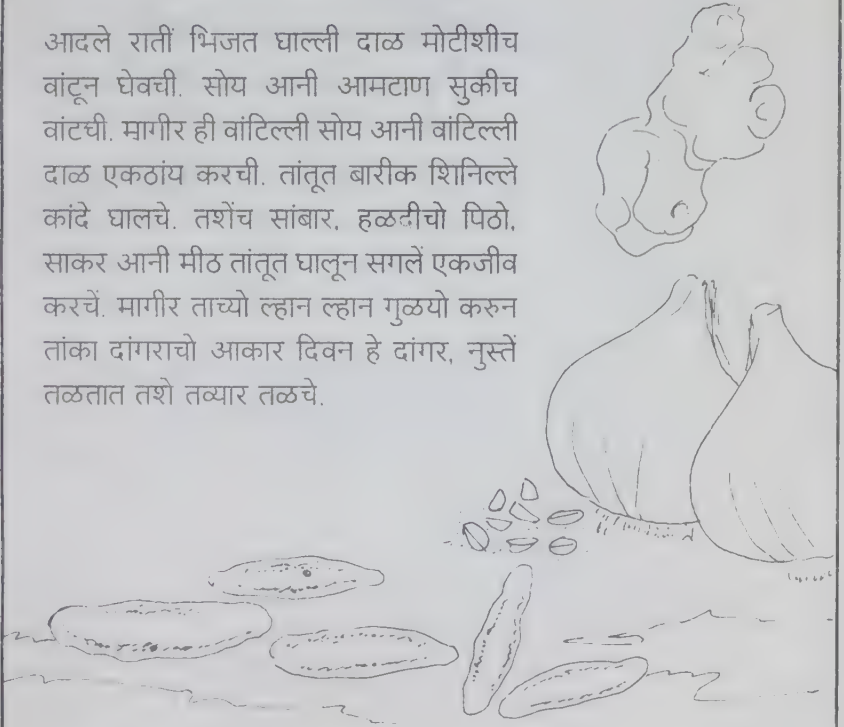 आदले रातीं भिजत घाल्ली दाळ मोटीशीच
वांटून घेवची. सोय आनी आमटाण सुकीच
वांटची. मागीर ही वांटिल्ली सोय आनी वांटिल्ली
दाळ एकठांय करची. तांतूत बारीक शिनिल्ले
कांदे घालचे. तशेंच सांबार, हळदीचो पिठो,
साकर आनी मीठ तांतूत घालून सगलें एकजीव
करचें. मागीर ताच्यो ल्हान ल्हान गुळयो करुन
तांका दांगराचो आकार दिवन हे दांगर, नुस्तें
तळतात तशे तव्यार तळचे.